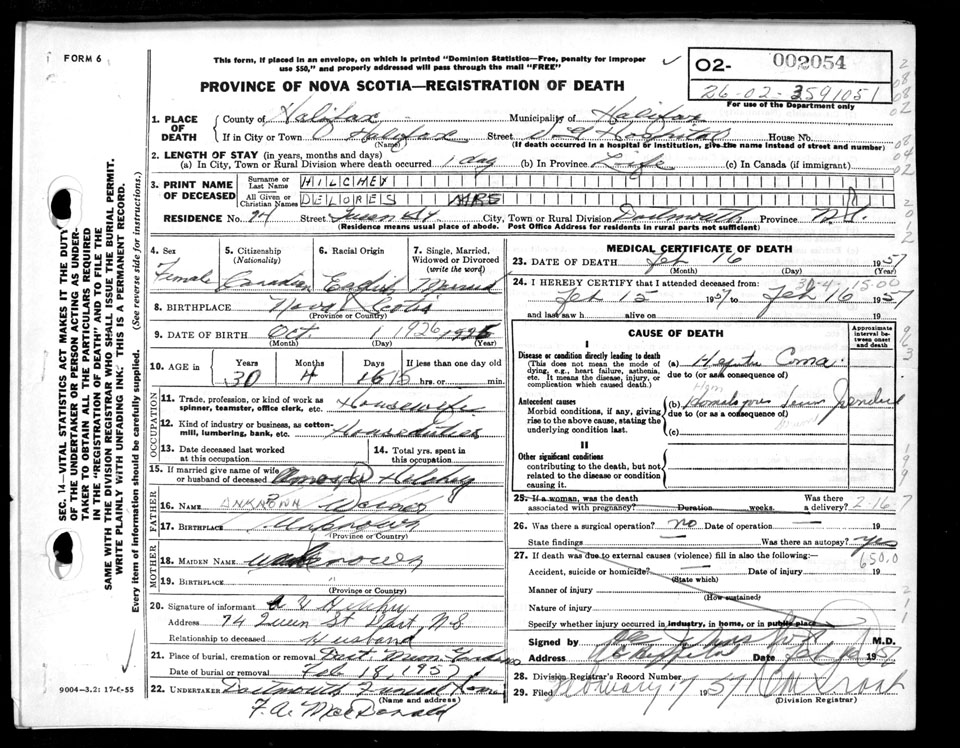 FORM 6
This form, if placed in an envelope, on which is printed "Dominion Statistics—Free, penalty for improper
use $50," and properly addressed will pass through the mail "FREE"
PROVINCE OF NOVA SCOTIA—REGISTRATION OF DEATH
O2- 002054
26-02-3591051
For use of the Department only
1. PLACE OF DEATH
County of Halifax Municipality of Halifax
If in City or Town Halifax Street Hospital House No.
(Name) (If death occurred in a hospital or institution, give the name instead of street and number)
2. LENGTH OF STAY (in years, months and days)
(a) In City, Town or Rural Division where death occurred 1 day (b) In Province Life (c) In Canada (if immigrant)
3. PRINT NAME OF DECEASED
Surname or Last Name HILCHEY
All Given or Christian Names DELORES MRS
RESIDENCE No. 74 Street City, Town or Rural Division Dartmouth Province N.S.
(Residence means usual place of abode. Post Office Address for residents in rural parts not sufficient)
4. Sex Female
5. Citizenship (Nationality) Canadian
6. Racial Origin English
7. Single, Married, Widowed or Divorced (write the word) Married
8. BIRTHPLACE Nova Scotia
(Province or Country)
9. DATE OF BIRTH Oct 1 1926 1926
(Month) (Day) (Year)
10. AGE in Years Months Days If less than one day old
30 4 15 hrs. or min.
OCCUPATION
11. Trade, profession, or kind of work as spinner, teamster, office clerk, etc. Housewife
12. Kind of industry or business, as cotton-mill, lumbering, bank, etc. Housduties
13. Date deceased last worked at this occupation
14. Total yrs. spent in this occupation
15. If married give name of wife or husband of deceased
FATHER
16. NAME UNKNOWN
17. BIRTHPLACE Unknown
(Province or Country)
MOTHER
18. MAIDEN NAME
19. BIRTHPLACE
(Province or Country)
20. Signature of informant
Address 74 Queen St Dart N S
Relationship to deceased Husband
21. Place of burial, cremation or removal Dart. Mem. Gardens
Date of burial or removal Feb 18, 1957
22. UNDERTAKER Dartmouth Funeral Home
(Name and address)
F. A. MacDonald
9004—3.2: 17-6-55
MEDICAL CERTIFICATE OF DEATH
23. DATE OF DEATH Feb 16 1957
(Month) (Day) (Year)
24. I HEREBY CERTIFY that I attended deceased from:
Feb 15 1957 to Feb 16 1957
and last saw h alive on 19
CAUSE OF DEATH
Approximate interval between onset and death
I
Disease or condition directly leading to death
(This does not mean the mode of dying, e.g., heart failure, asthenia, etc. It means the disease, injury, or complication which caused death.)
(a) Hepatic Coma
due to (or as consequence of)
Antecedent causes
Morbid conditions, if any, giving rise to the above cause, stating the underlying condition last.
(b) Homologous Serum Jaundice
due to (or as a consequence of)
(c)
II
Other significant conditions
contributing to the death, but not related to the disease or condition causing it.
25. If a woman, was the death associated with pregnancy? Duration weeks. Was there a delivery?
26. Was there a surgical operation? no Date of operation — 19
State findings — Was there an autopsy? yes
27. If death was due to external causes (violence) fill in also the following:
650.0
Accident, suicide or homicide? Date of injury 19
(State which)
Manner of injury
(How sustained)
Nature of injury
Specify whether injury occurred in industry, in home, or in public place
Signed by M.D.
Address Date 1957
28. Division Registrar's Record Number
29. Filed February 17 1957
(Division Registrar)
SEC. 14—VITAL STATISTICS ACT MAKES IT THE DUTY
OF THE UNDERTAKER OR PERSON ACTING AS UNDER-
TAKER TO OBTAIN ALL THE PARTICULARS REQUIRED
IN THE "REGISTRATION OF DEATH" AND TO FILE THE
SAME WITH THE DIVISION REGISTRAR WHO SHALL ISSUE THE BURIAL PERMIT.
WRITE PLAINLY WITH UNFADING INK. THIS IS A PERMANENT RECORD.
Every item of information should be carefully supplied. (See reverse side for instructions.)